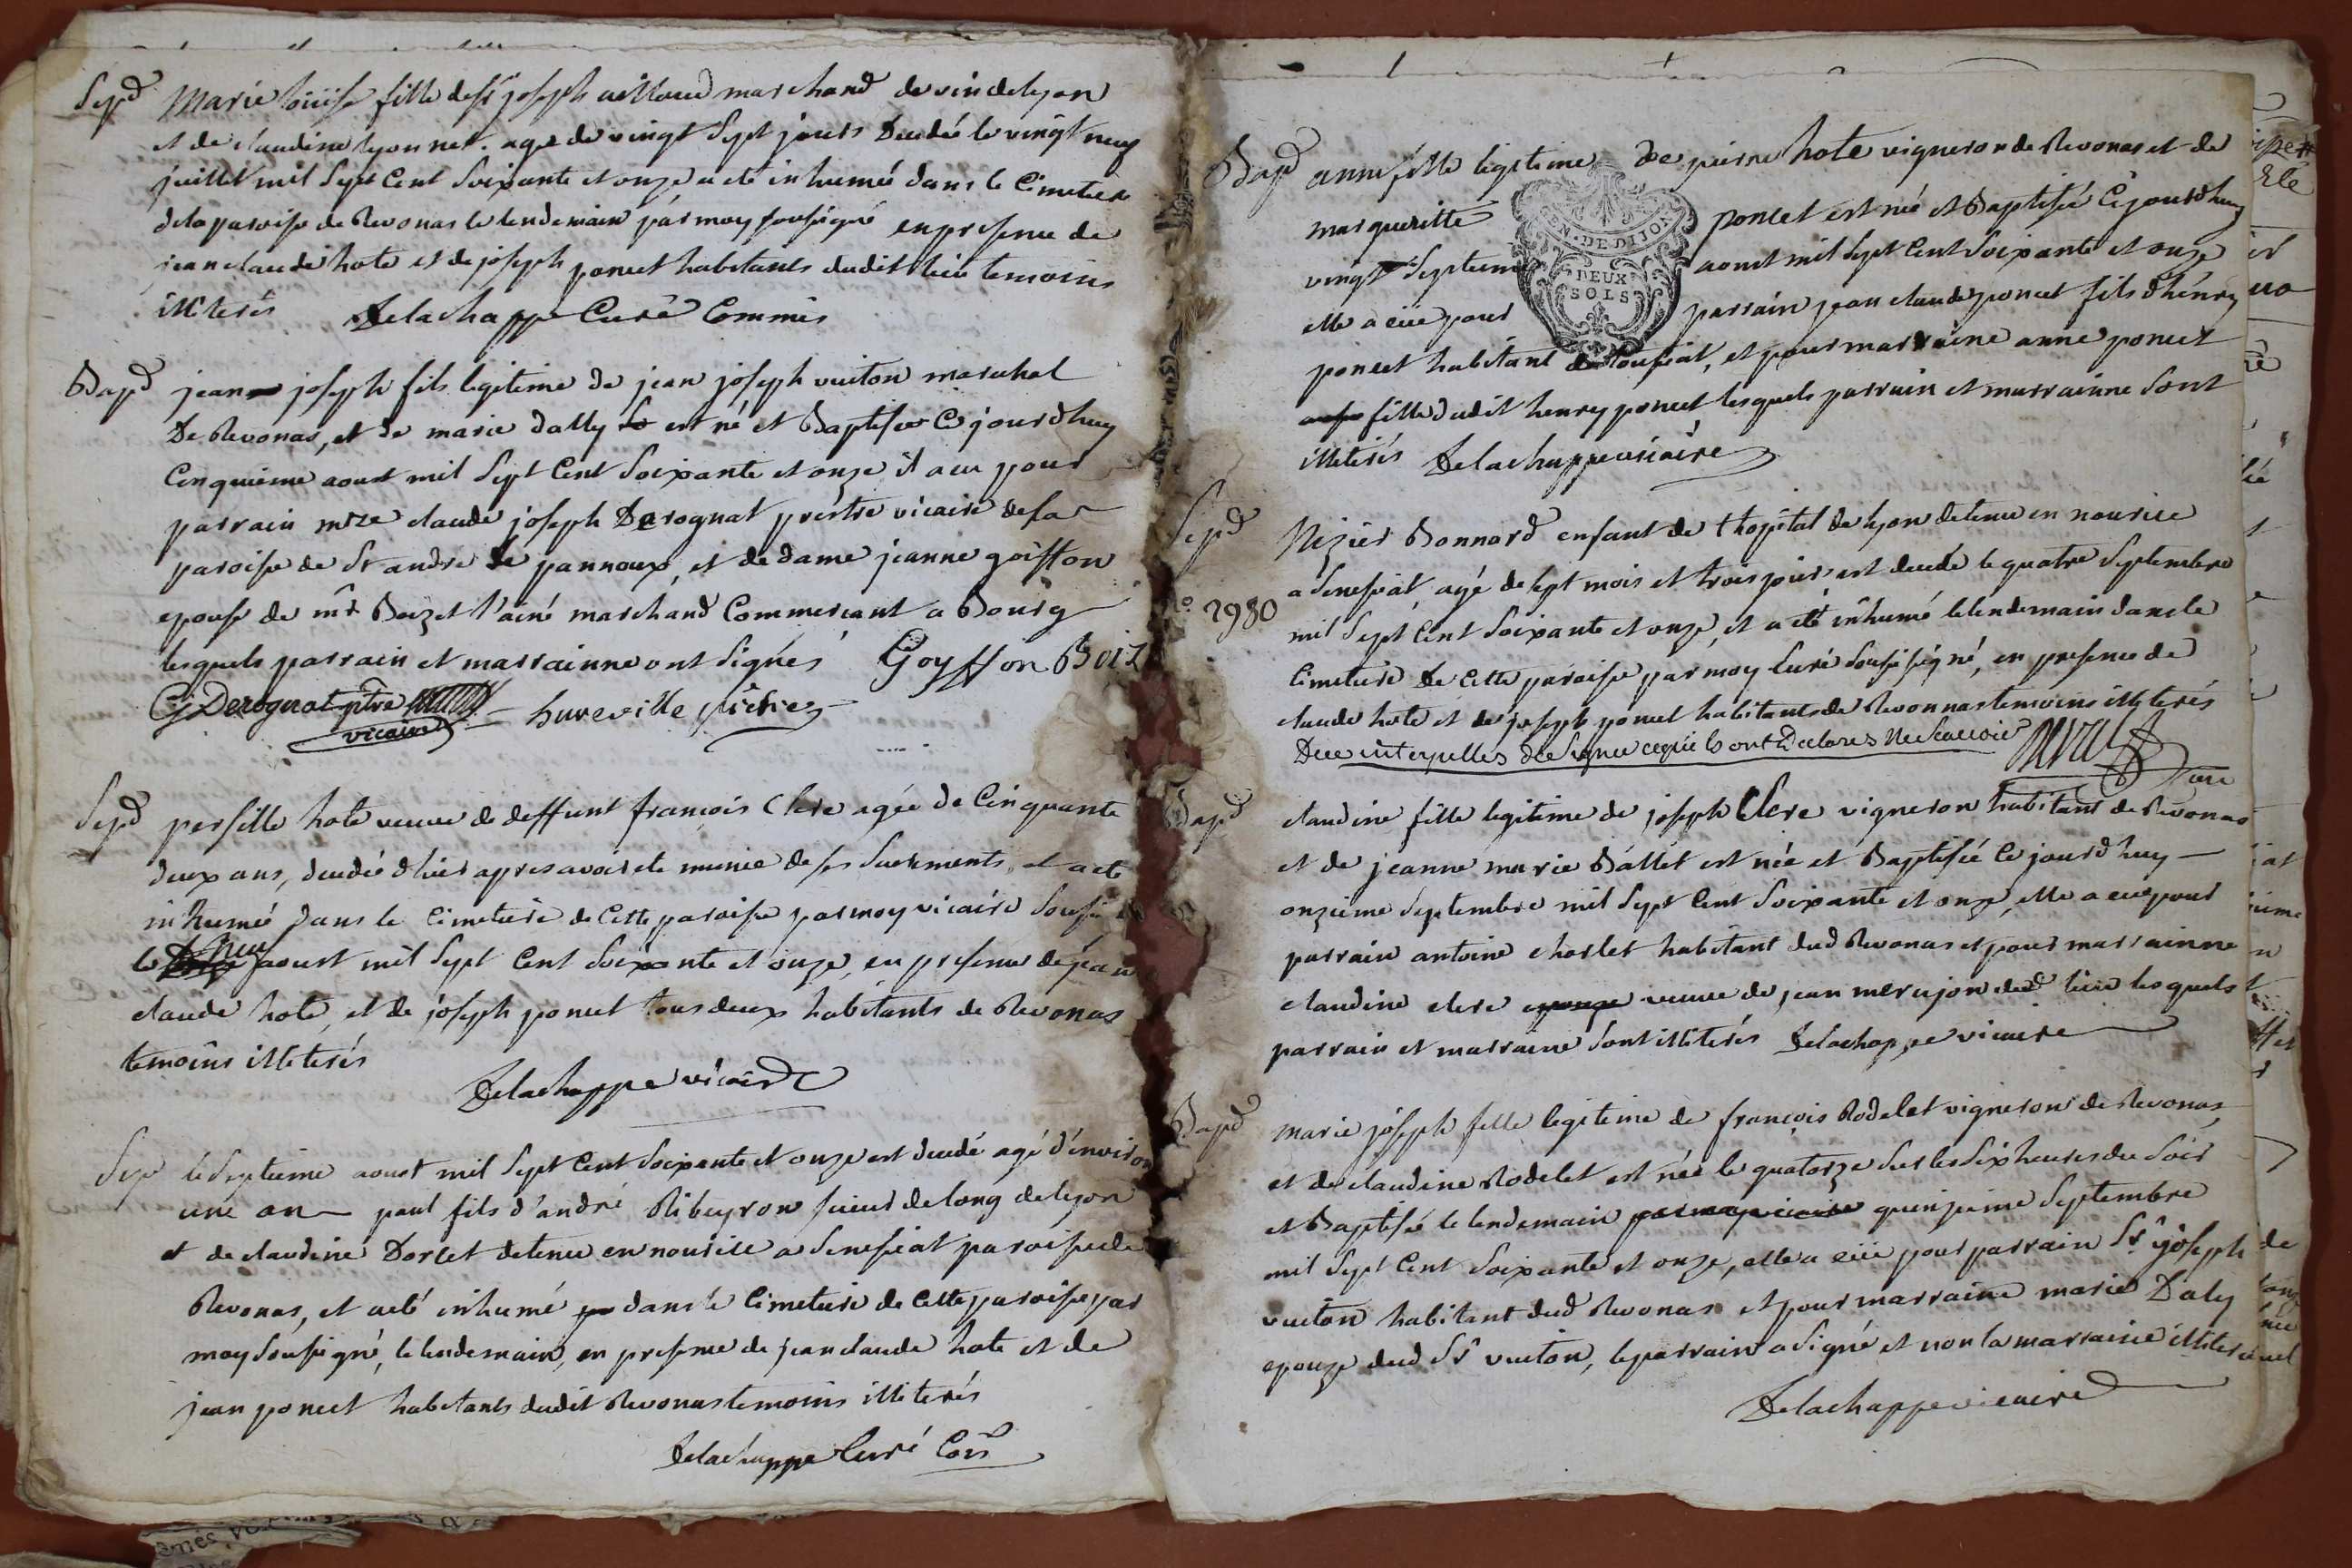 Sepd Marie loüise fille de sr joseph ailloud marchand de vin de lyon
et de claudine lyonnet. agé de vingt sept jours decedée le vingt neuf
juillet mil sept cent soixante et onze a eté inhumée dans le cimetiere
de la paroisse de Revonas le lendemain par moy soussigné en presence de
jean claude hote et de joseph poncet habitants dudit lieu temoins
illiterés Delachappe Curé Commis
Bapd jean joseph fils legitime de jean joseph vuiton marechal
De Revonas, et de marie dally est né et Baptisée Cejourdhuy
Cinquieme aoust mil sept Cent soixante et onze il a eu pour
parrain mre claude joseph Derognat prêstre vicaire de la
paroisse de St andre de pannoux, et de dame jeanne goiffon
epouse de mr Boizet l'ainé marchand Commercant a Bourg
lesquels parrain et marrainne ont signés Goyffon Boiz
Cj Derognat ptre hureville
vicaire
Sepd persille hote veuve de deffunt françois Clere agée de Cinquante
deux ans, decedée d hier apres avoir ete munie de ses sacrements, et a ete
inhumée dans le cimetiere de Cette paroisse par moy vicaire
le neuf aoust mil sept Cent soixante et onze, en presence de jean
claude hote, et de joseph poncet tous deux habitants de Revonas
temoins illiterés
Delachappe vicaire
Sep le septieme aoust mil sept Cent soixante et onze est decedé agé d'environ
une an paul fils d'andré Ribeyron sieur de long de lyon
et de claudine Dorlet detenu en nourice a senessiat paroisse de
Revonas, et a eté inhumé dans le Cimetiere de Cette paroisse par
moy soussigné, le lendemain, en presence de jean claude hote et de
jean poncet habitants dudit Revonas temoins illiterés
Delachappe Curé Com
Bapd anne fille legitime de pierre hote vigneron de Revonas et de
margueritte poncet est née et Baptisée Cejourdhuy
vingt septieme aoust mil sept Cent soixante et onze
elle a eüe pour parrain jean claude poncet fils d henry
EN. DE DIJON
DEUX
SOLS
poncet habitant de, et pour marraine anne poncet
fille dudit henry poncet lesquels parrain et marrainne sont
illiterés Delachappe vicaire
Sepd Nizier Bonnard enfant de l hopital de lyon detenu en nourice
a senessiat, agé de sept mois et trois jours est decedé le quatre septembre
No. 2980
mil sept Cent soixante et onze, et a eté inhumé le lendemain dans le
Cimetiere de Cette paroisse par moy Curé soussigné, en presence de
claude hote et de joseph poncet habitants de Revonnas temoins illiterés
Deue interpelles de signer ce qu'ils ont declares ne scavoir
Bapd claudine fille legitime de joseph Clere vigneron habitant de Revonas
et de jeanne marie Ballet est née et Baptisée Ce jourdhuy
onzieme septembre mil sept Cent soixante et onze, elle a eüe pour
parrain antoine charlet habitant dud Revonas et pour marrainne
claudine clere epouze veuve de jean merujon dud lieu lesquels
parrain et marraine sont illiterés Delachappe vicaire
Bapd marie joseph fille legitime de françois Rodelet vigneron de Revonas,
et de claudine Rodelet est née le quatorze sur les six heures du soir
et Baptisée le lendemain par moy vicaire quinzieme septembre
mil sept Cent soixante et onze, elle a eüe pour parrain Sr joseph
vuiton habitant dud Revonas et pour marraine marie Daly
epouze dud Sr vuiton, le parrain a signé et non la marraine illiterée
Delachappe vicaire